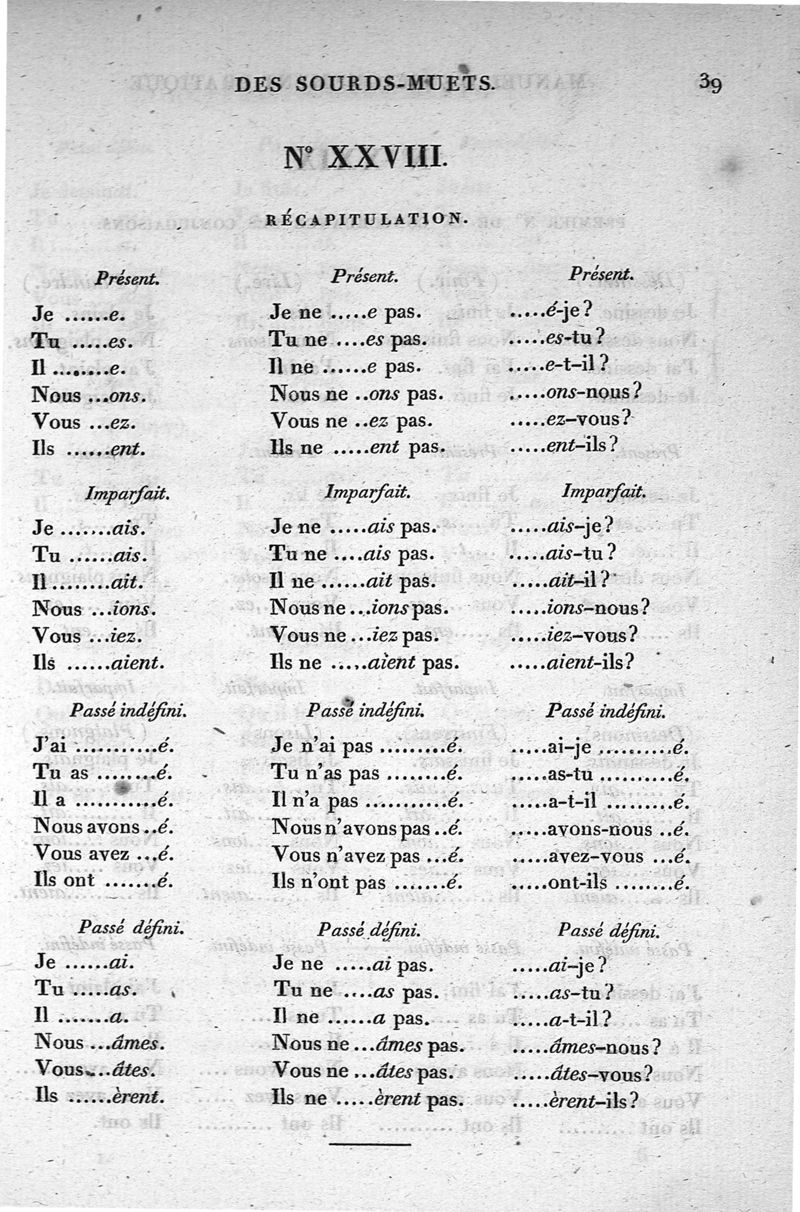 DES SOURDS-MUETS. 39
N° XXVIII.
RÉCAPITULATION.
Présent. Présent. Présent.
Je ......e. Je ne .....e pas. .....é-je?
Tu .....es. Tu ne ....es pas. .....es-tu?
Il .......e. Il ne ......e pas. .....e-t-il?
Nous ...ons. Nous ne ..ons pas. .....ons-nous?
Vous ...ez. Vous ne ..ez pas. .....ez-vous?
Ils ......ent. Ils ne .....ent pas. .....ent-ils?
Imparfait. Imparfait. Imparfait.
Je .......ais. Je ne .....ais pas. .....ais-je?
Tu ......ais. Tu ne ....ais pas. .....ais-tu?
Il ........ait. Il ne ......ait pas. .....ait-il?
Nous ...ions. Nous ne...ions pas. .....ions-nous?
Vous ...iez. Vous ne ...iez pas. .....iez-vous?
Ils ......aient. Ils ne .....aient pas. .....aient-ils?
Passé indéfini. Passé indéfini. Passé indéfini.
J'ai ...........é. Je n'ai pas .........é. .....ai-je ..........é.
Tu as ........é. Tu n'as pas ........é. .....as-tu ..........é.
Il a ...........é. Il n'a pas ...........é. .....a-t-il .........é.
Nous avons..é. Nous n'avons pas..é. .....avons-nous ..é.
Vous avez ...é. Vous n'avez pas ...é. .....avez-vous ...é.
Ils ont .......é. Ils n'ont pas .......é. .....ont-ils ........é.
Passé défini. Passé défini. Passé défini.
Je ......ai. Je ne .....ai pas. .....ai-je?
Tu .....as. Tu ne ....as pas. .....as-tu?
Il .......a. Il ne ......a pas. .....a-t-il?
Nous ...âmes. Nous ne ...âmes pas. .....âmes-nous?
Vous....âtes. Vous ne ...âtes pas. .....âtes-vous?
Ils ......èrent. Ils ne .....èrent pas. .....èrent-ils?